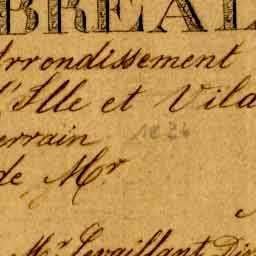 BRÉAL
Arrondissement
l'Ille et Vila
errain
1826
de Mr
Mr Levaillant Dir